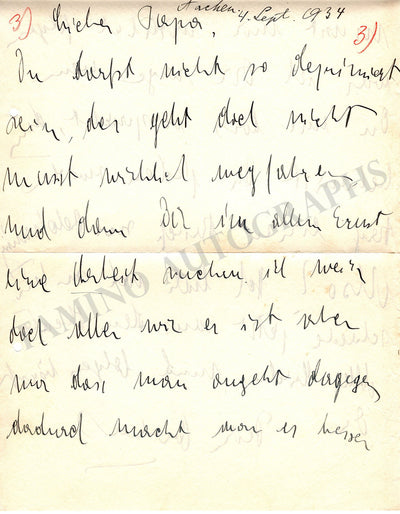 3) Lieber Papa, Aachen 4. Sept. 1934 3)
Du darfst nicht so deprimiert
sein, das geht doch nicht
musst wirklich wegfahren
und dann Dir in allem Ernst
eine Arbeit suchen. ich weiss
doch aller wie es ist aber
nur das man angeht dagegen
dadurch macht man es besser
TAMINO AUTOGRAPHS